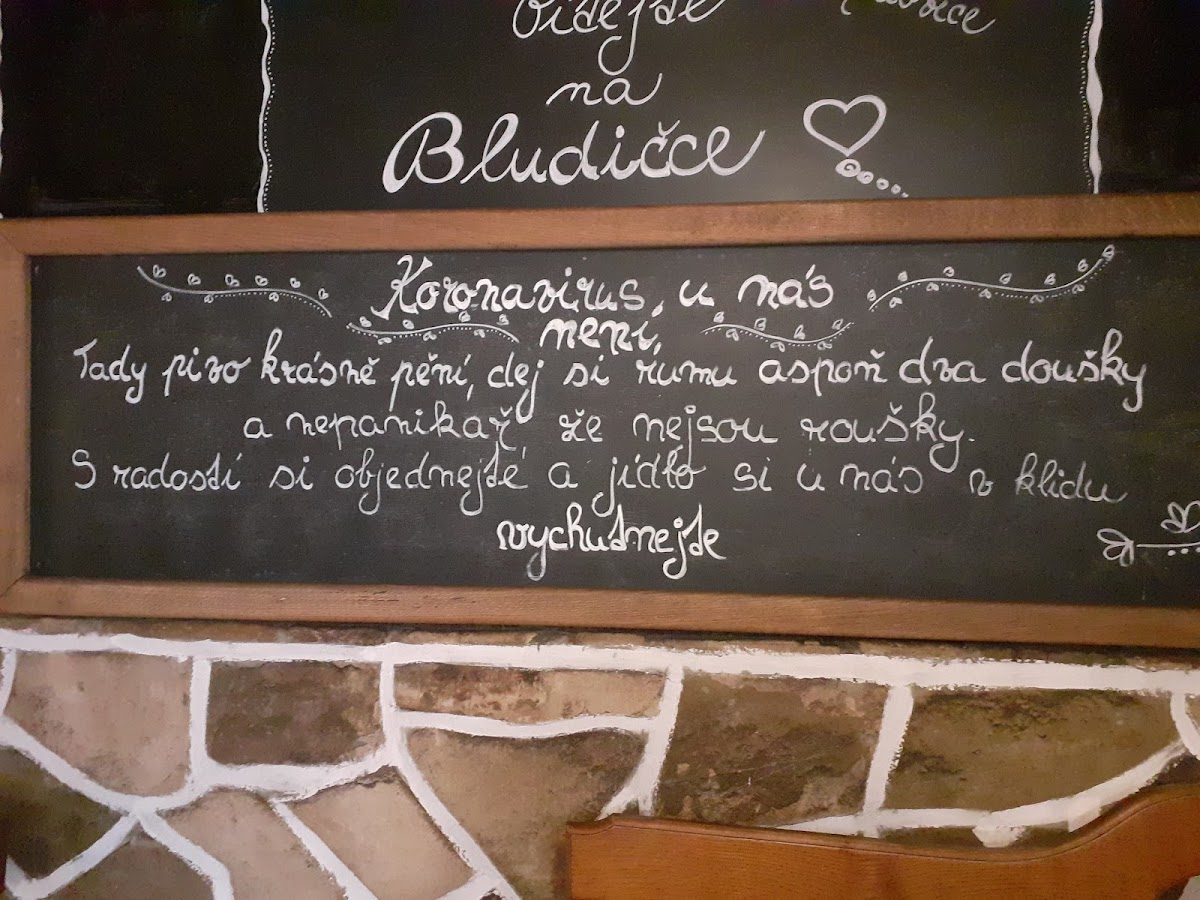 Vítejte
na
Bludičce
Koronavirus u nás
není,
Tady pivo krásně pění, dej si rumu aspoň dva doušky
a nepanikař že nejsou roušky.
S radostí si objednejte a jídlo si u nás v klidu
vychutnejte